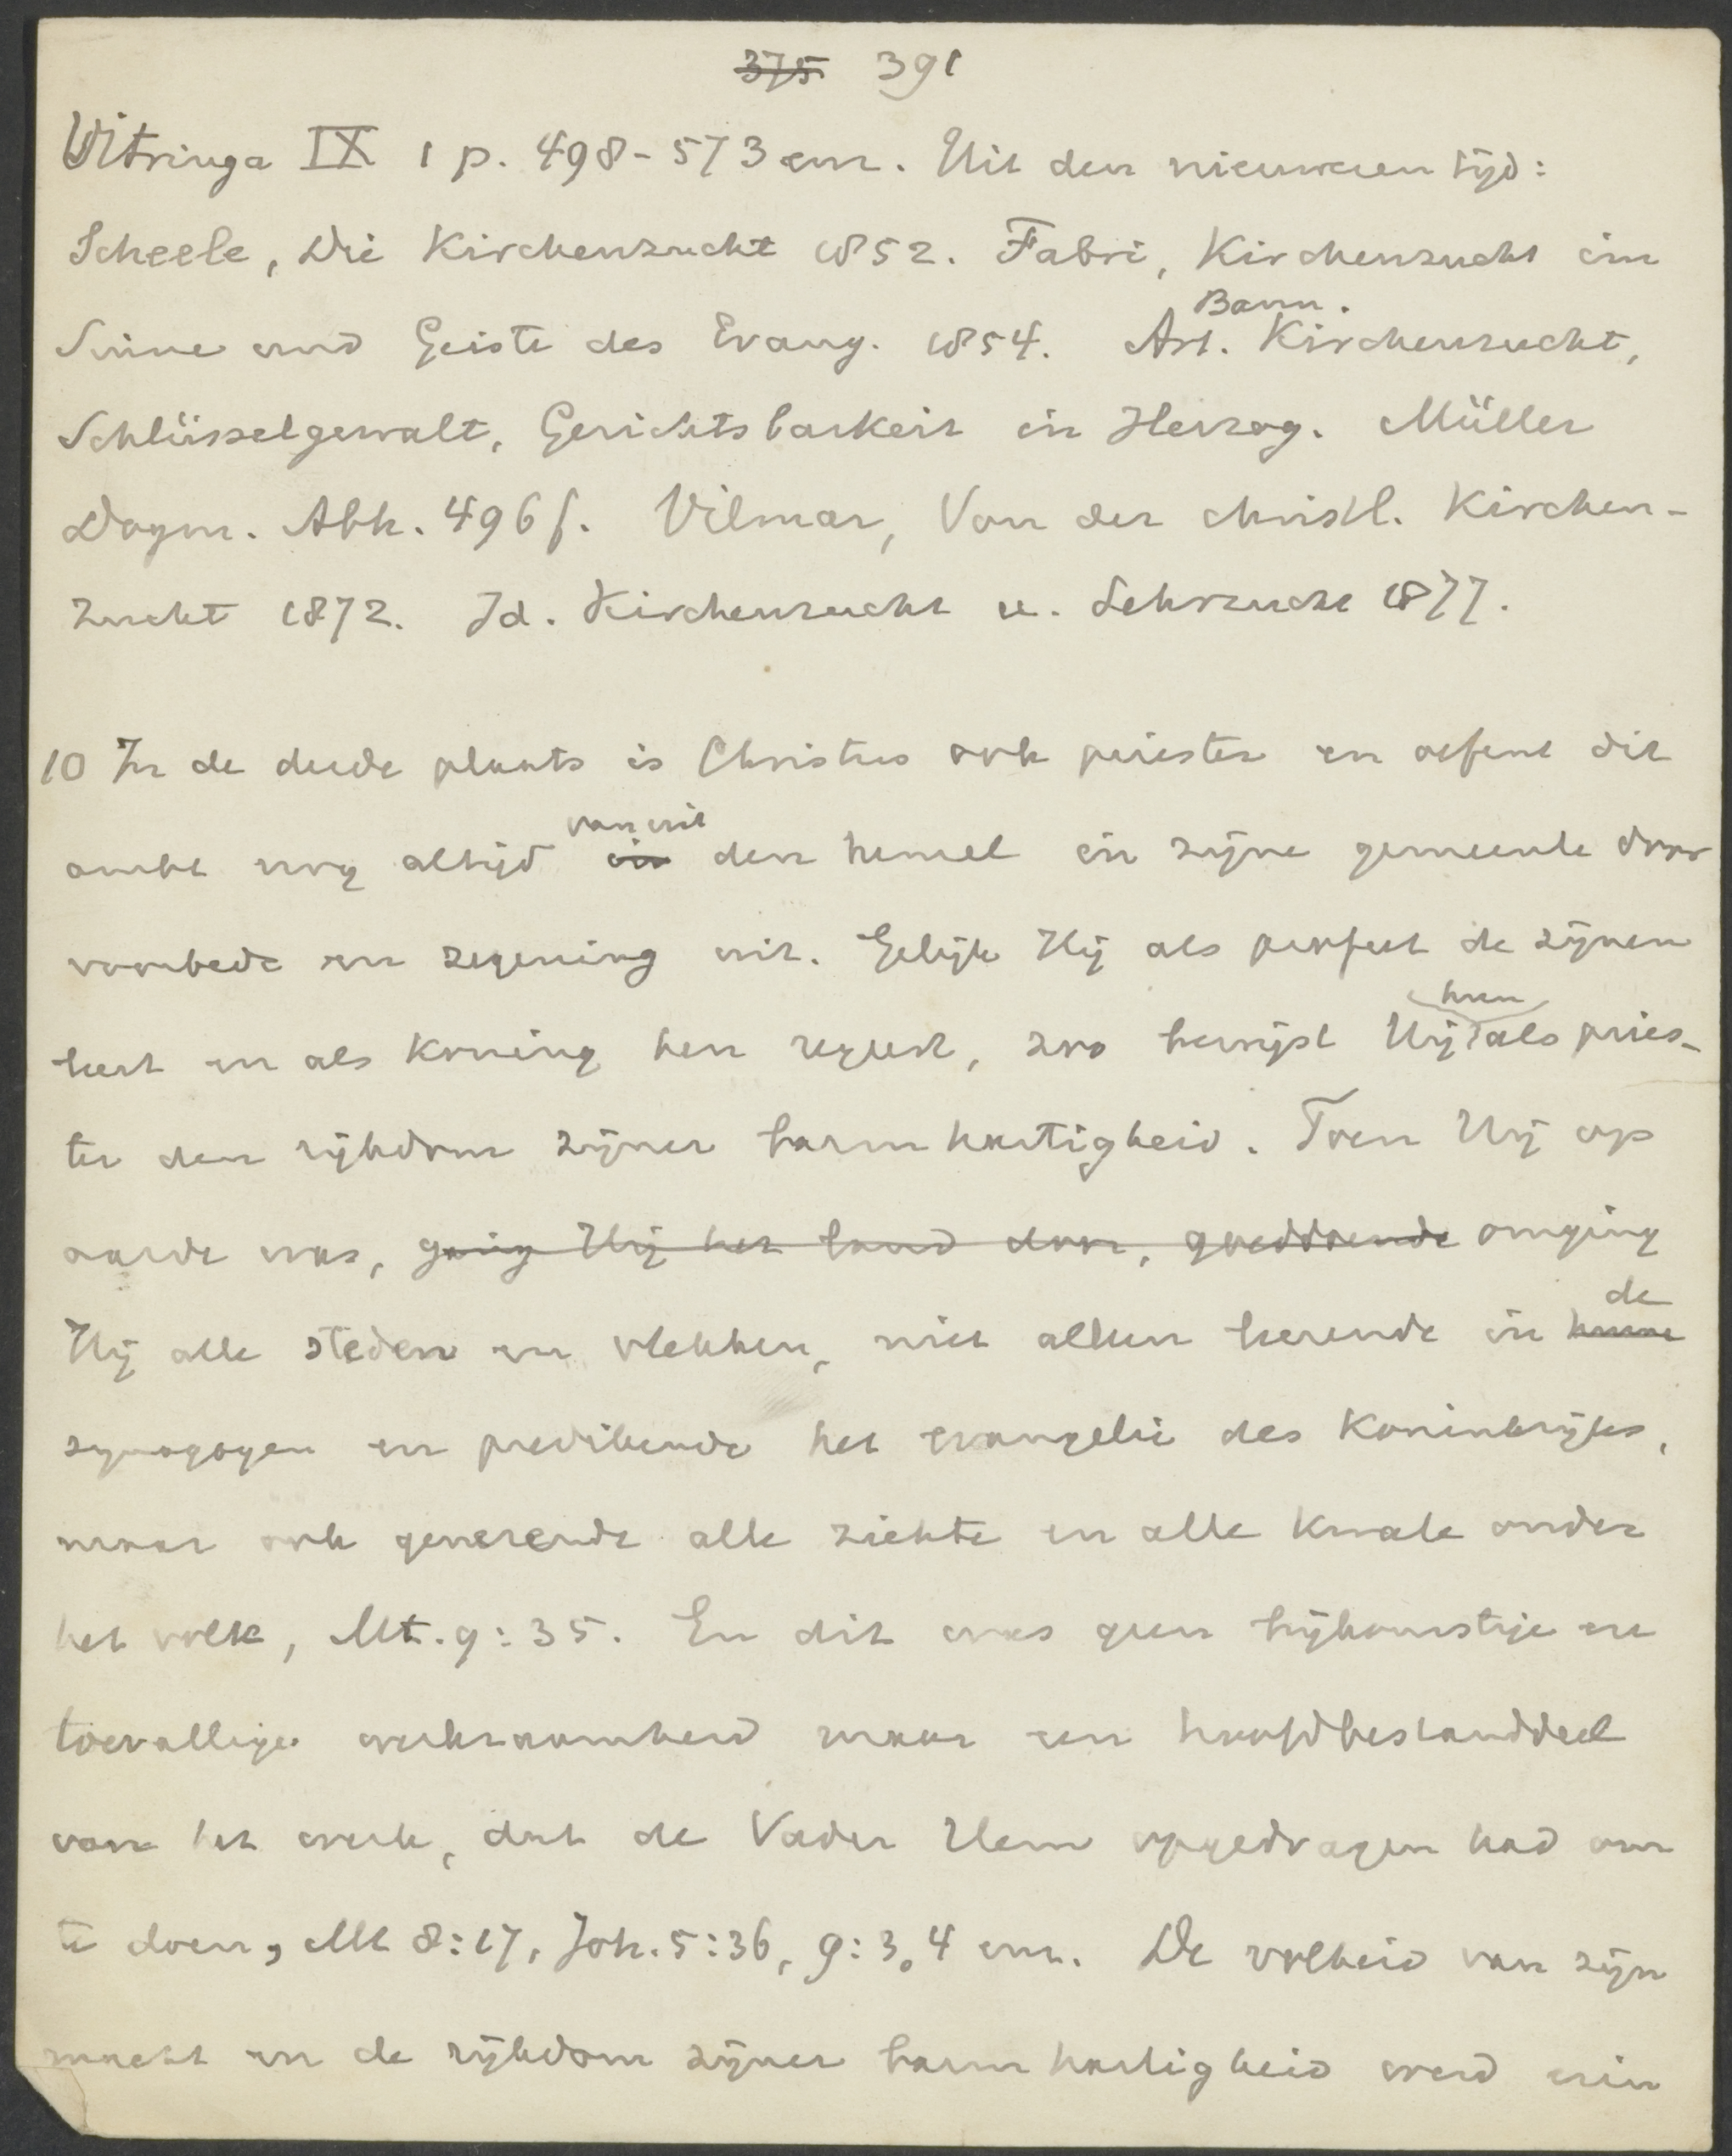 375 391
Vitringa IX 1 p. 498-573 enz. Uit den nieuweren tijd:
Scheele, Die Kirchenzucht 1852. Fabri, Kirchenzucht im
Bann.
Sinne und Geiste des Evang. 1854. Art. Kirchenzucht,
Schlüsselgewalt, Gerichtsbarkeit in Herzog. Müller
Dogm. Abh. 496 f. Vilmar, Von der christl. Kirchen-
zucht 1872. Id. Kirchenzucht u. Lehrzucht 1877.
10 In de derde plaats is Christus ook priester en oefent dit
van uit
ambt nog altijd in den hemel in zijne gemeente door
voorbede en zegening uit. Gelijk Hij als profeet de zijnen
hun
leert en als koning hen regeert, zoo bewijst Hij als pries-
ter den rijkdom zijner barmhartigheid. Toen Hij op
aarde was, ging Hij het land door, goeddoende omging
de
Hij alle steden en vlekken, niet alleen leerende in hunne
synagogen en predikende het evangelie des Koninkrijks,
maar ook genezende alle ziekte en alle kwale onder
het volk, Mt. 9:35. En dit was geen bijkomstige en
toevallige werkzaamheid maar een hoofdbestanddeel
van het werk, dat de Vader Hem opgedragen had om
te doen, Mt 8:17, Joh. 5:36, 9:3,4 enz. De volheid van zijn
macht en de rijkdom zijner barmhartigheid werd erin